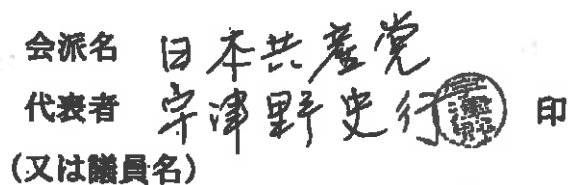 会派名 日本共産党
代表者 宇津野史行 印
(又は議員名)